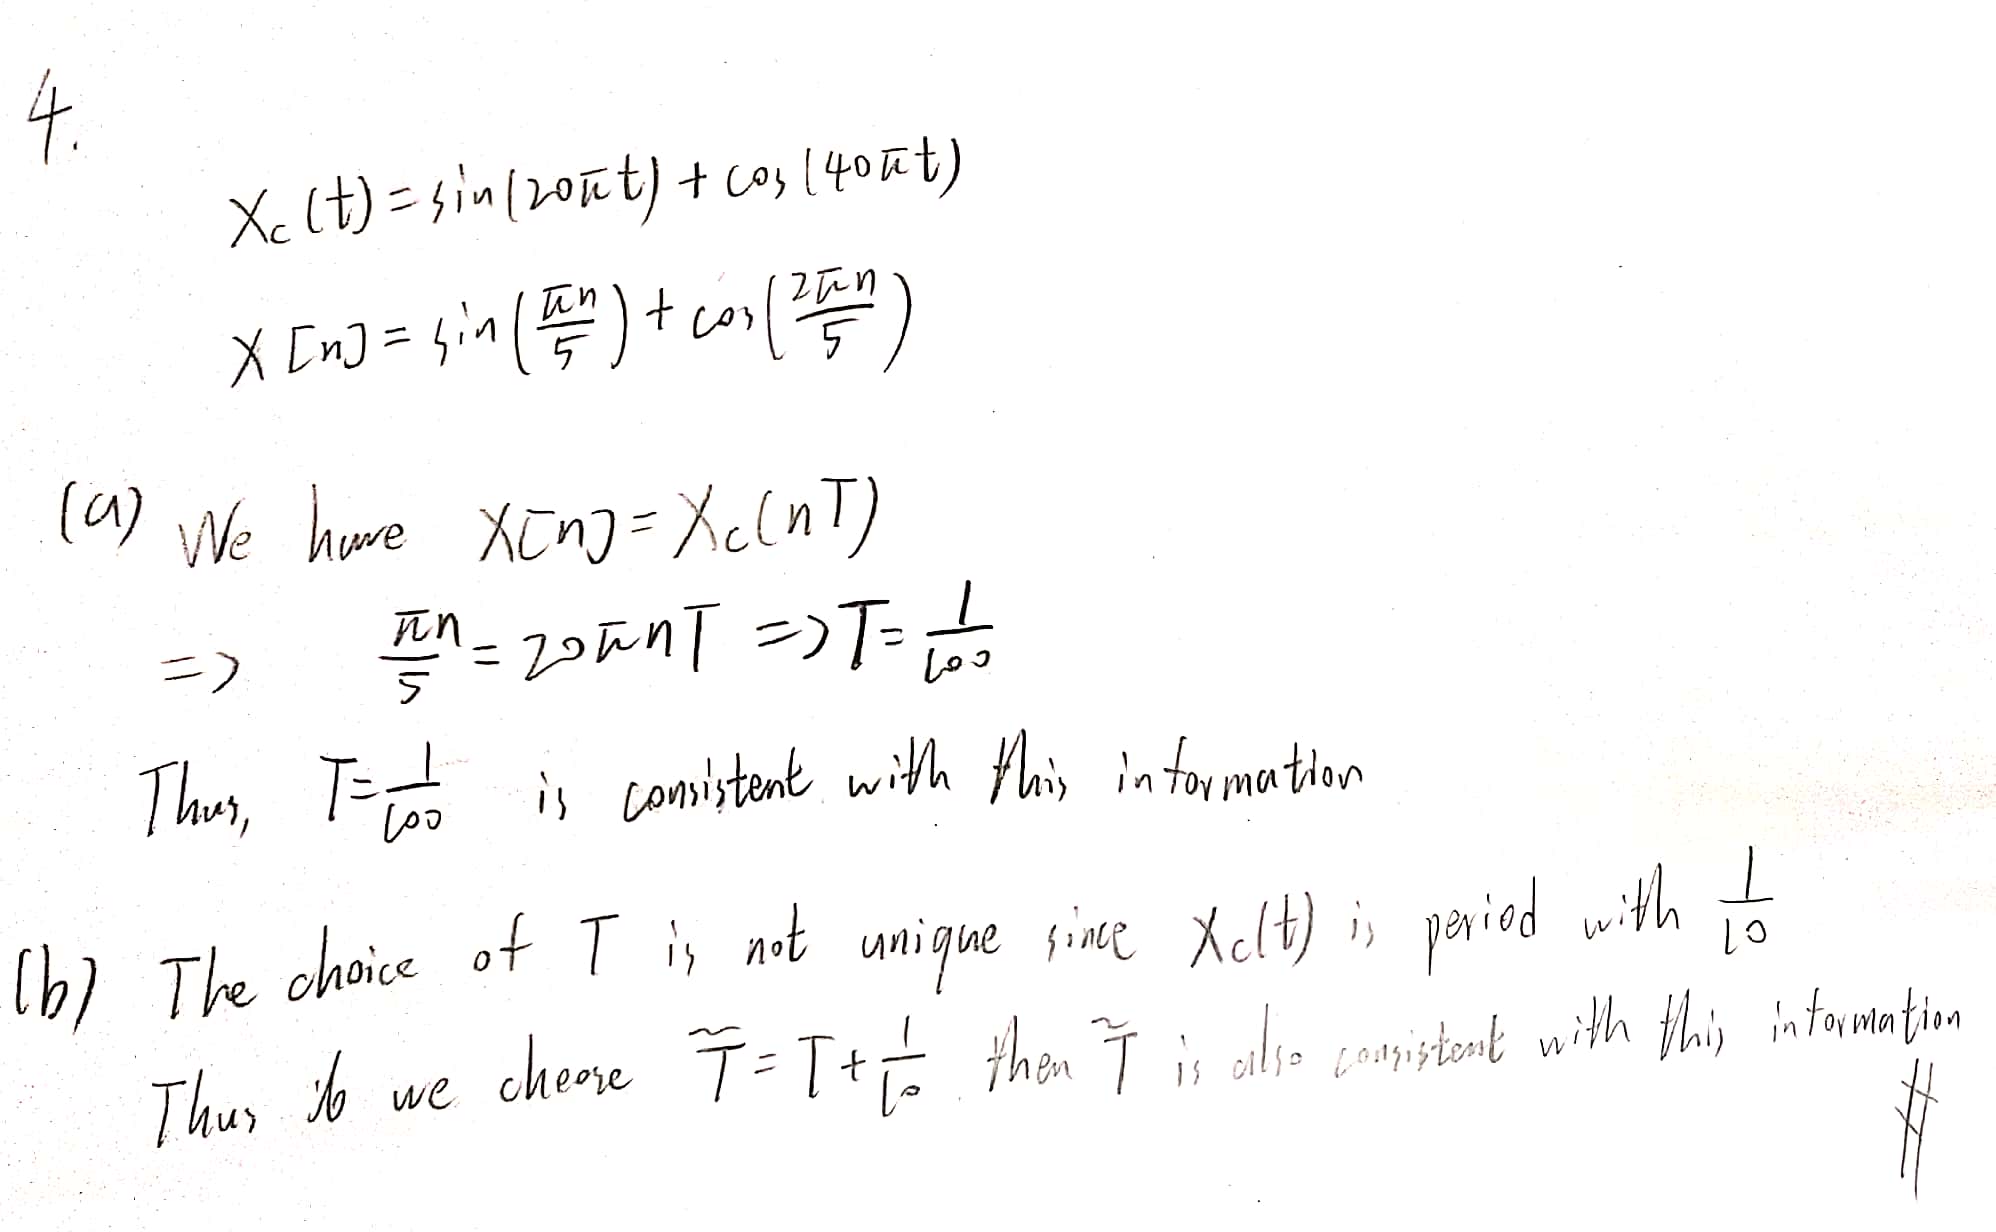 4.
Xc(t) = sin(20πt) + cos(40πt)
X[n] = sin(πn/5) + cos(2πn/5)
(a) We have X[n] = Xc(nT)
=> πn/5 = 20πnT => T = 1/100
Thus, T = 1/100 is consistent with this information
(b) The choice of T is not unique since Xc(t) is period with 1/10
Thus if we choose T̃ = T + 1/10 then T̃ is also consistent with this information
#